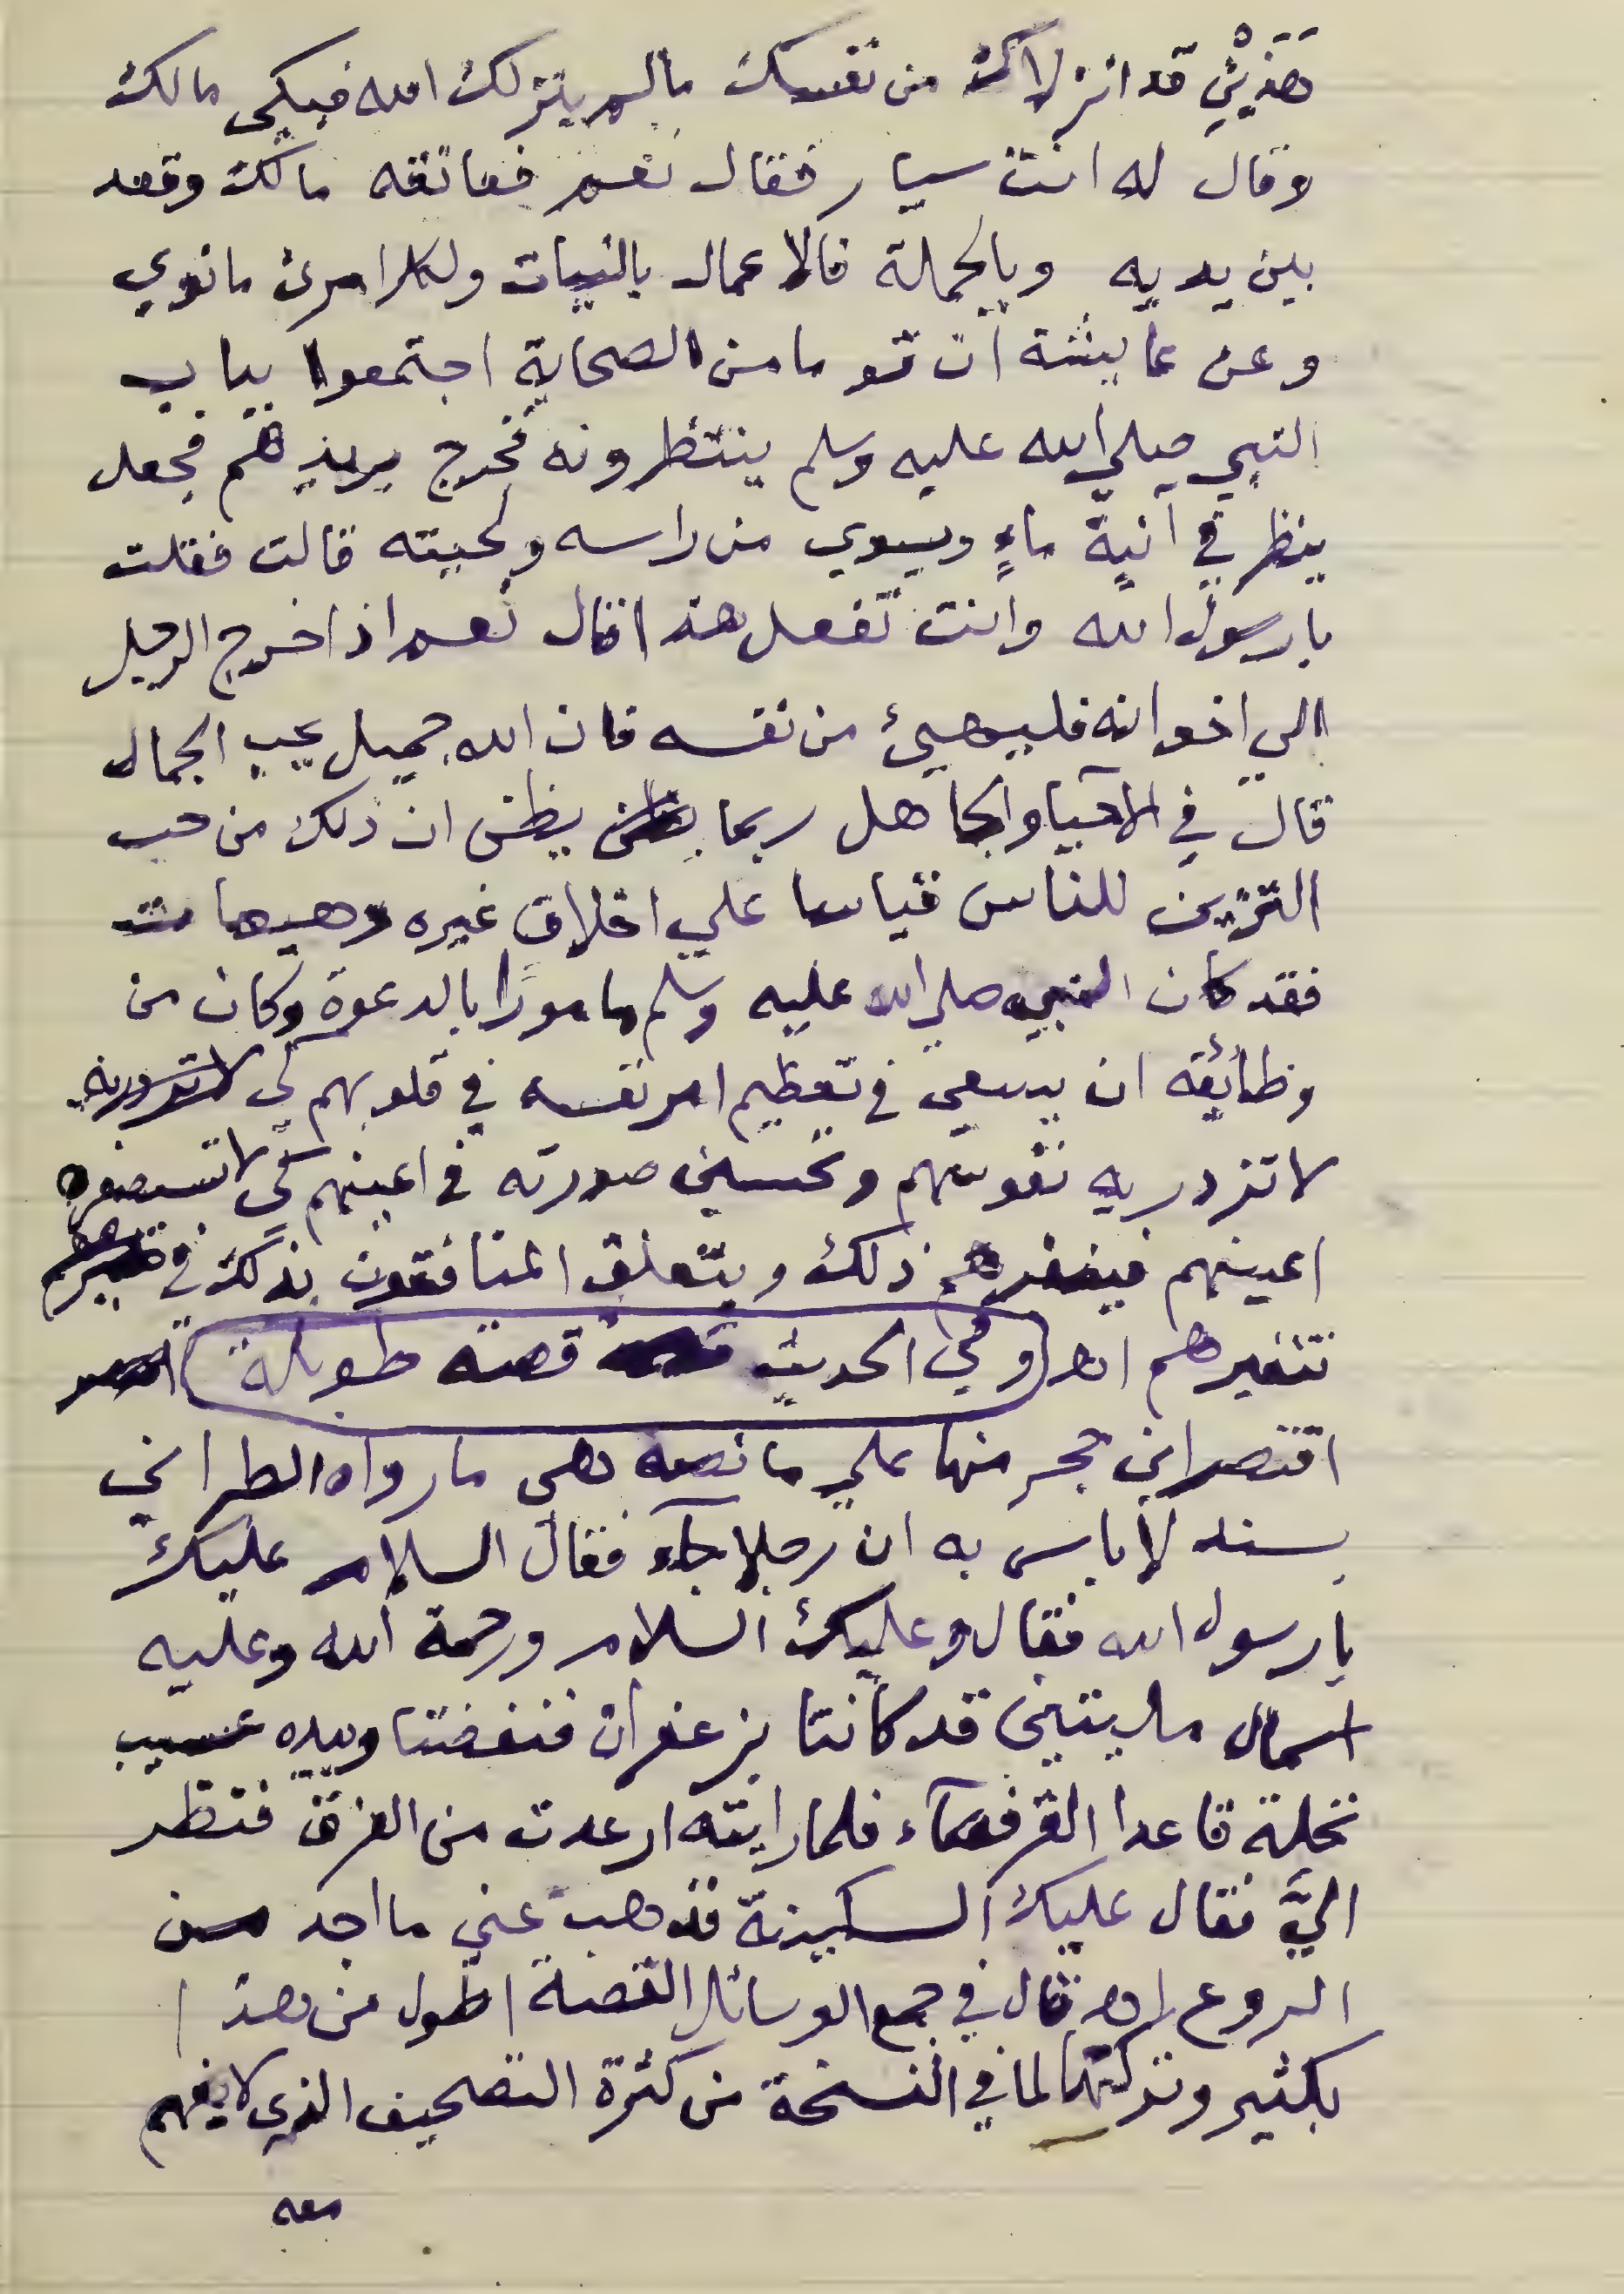 هَذَيْنِ قد انزلاك من نفسك مالم ينزلك الله فبكى مالك
وقال له انت سيار فقال نعم فعانقه مالك وقعد
بين يديه وبالجملة فالاعمال بالنيات ولكل امرئ مانوي
وعن عايشة ان قوما من الصحابة اجتمعوا بباب
النبي صلي الله عليه وسلم ينتظرونه فخرج يريدهم فجعل
ينظر في آنية ماءٍ ويسوي من راسه ولحيته قالت فقلت
يارسول الله وانت تفعل هذا قال نعم اذا خرج الرجل
الي اخوانه فليهيئ من نفسه فان الله جميل يحب الجمال
قال في الاحيا والجاهل ربما يظن ان ذلك من حب
التزين للناس قياسا علي اخلاق غيره وهيهات
فقد كان النبي صلي الله عليه وسلم مامورًا بالدعوة وكان من
وظائفه ان يسعي في تعظيم امر نفسه في قلوبهم كي
لا تزدريه نفوسهم وتحسين صورته في اعينهم كي لا تستصغره
اعينهم فينفرهم ذلك ويتعلق المنافقون بذلك في
تنفيرهم اهـ (وفي الحديث قصة طويلة)
اقتصر ابن حجر منها علي ما نصه وهي ما رواه الطبراني
بسند لا باس به ان رجلا جآء فقال السلام عليك
يا رسول الله فقال وعليك السلام ورحمة الله وعليه
اسمال مليتين قد كانتا بزعفران فنفضتا وبيده عسيب
نخلة قاعدا القرفصآء فلما رايته ارعدت من الفرق فنظر
اليَّ فقال عليك السكينة فذهب عني ما اجد من
الروع اهـ قال في جمع الوسائل القصة اطول من هذا
بكثير وتركتها لما في النسخة من كثرة التصحيف الذي لا يفهم
معه